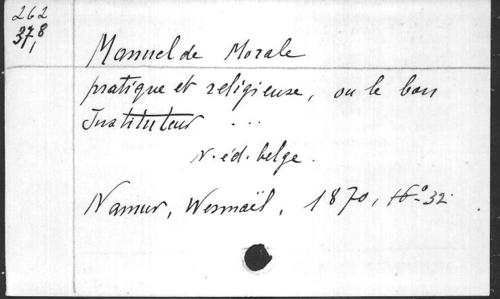 262
37,8
Manuel de Morale
pratique et religieuse, ou le bon
Instituteur ...
N. éd. belge.
Namur, Wesmaël, 1870, 16° 32